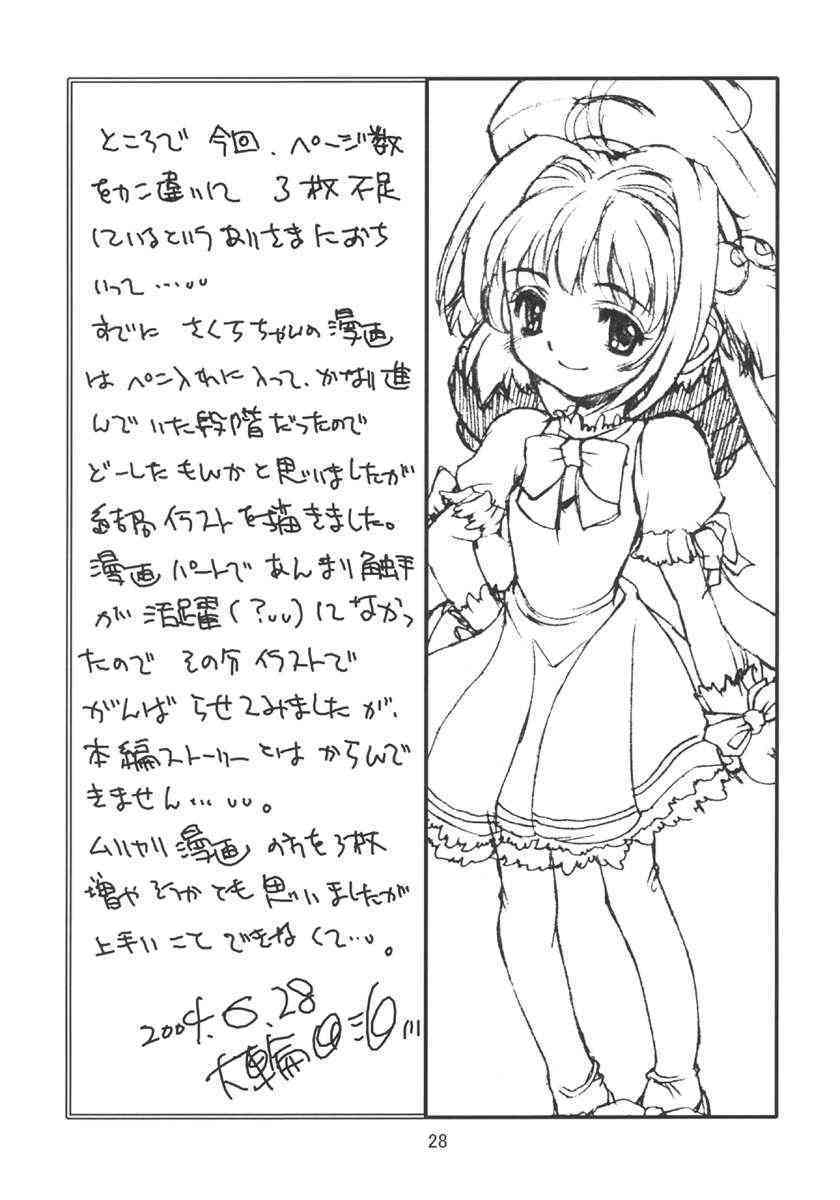 ところで 今回、ページ数
をかん違いして 3枚不足
しているというありさまにおち
いって…
すでに さくらちゃんの漫画
は ペン入れに入って、かなり進
んでいた段階だったので
どーしたもんかと思いましたが
結局イラストを描きました。
漫画パートであんまり触手
が活躍(?)してなかっ
たので その分イラストで
がんばらせてみましたが、
本編ストーリーとはからんで
きません…。
ムリヤリ漫画の方を3枚
増やそうかとも思いましたが
上手いこと できなくて…。
2004.6.28
大輪
28